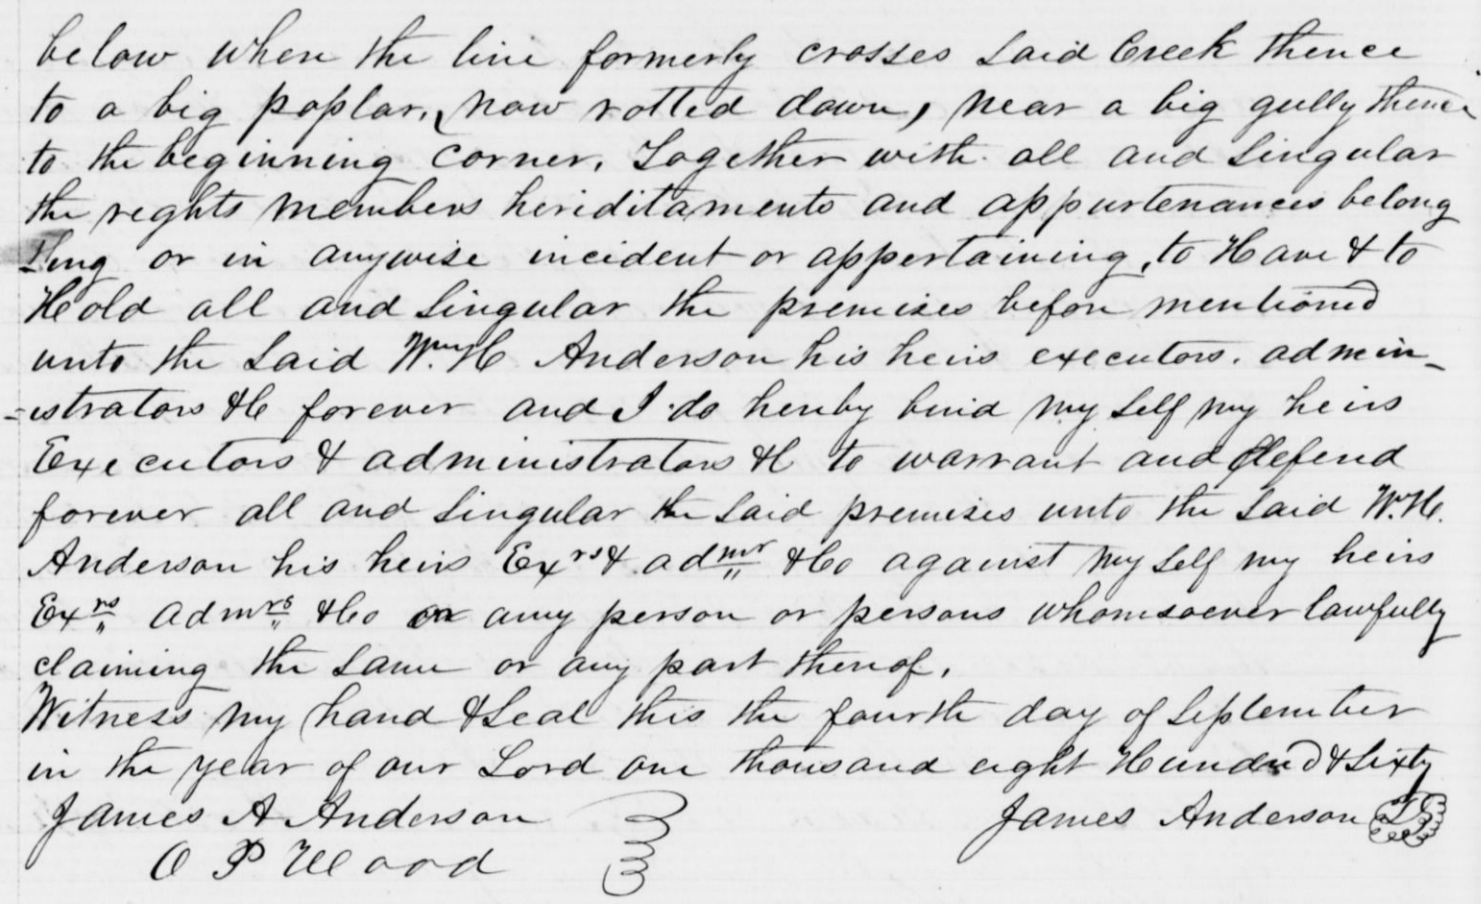 below when the line formerly crosses said Creek thence
to a big poplar, now rotted down, near a big gully thence
to the beginning corner. Together with all and singular
the reghts members hereditaments and appurtenances belong
=ing or in anywise incident or appertaining, to Have & to
Hold all and singular the premises before mentioned
unto the said Wm. H Anderson his heirs executors. admin-
=istrators &C forever and I do hereby bind my self my heirs
Executors & administrators &C to warrant and defend
forever all and singular the said premises unto the said W. H.
Anderson his heirs Exrs & admr &Co against my self my heirs
Exrs admrs &Co or any person or persons whomsoever lawfully
claiming the same or any part thereof.
Witness my hand & Seal this the fourth day of September
in the year of our Lord one thousand eight Hundred & Sixty
James A Anderson James Anderson LS
O P Wood